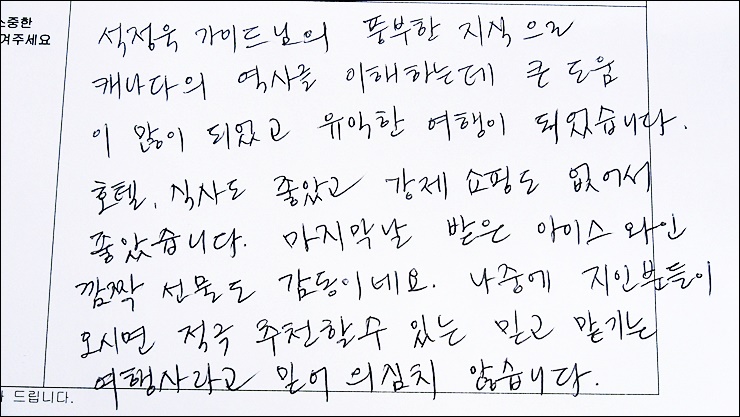 소중한
겨주세요
석정욱 가이드님의 풍부한 지식으로
캐나다의 역사를 이해하는데 큰 도움
이 많이 되었고 유익한 여행이 되었습니다.
호텔, 식사도 좋았고 강제 쇼핑도 없어서
좋았습니다. 마지막날 받은 아이스 와인
깜짝 선물도 감동이네요. 나중에 지인분들이
오시면 적극 추천할수 있는 믿고 맡기는
여행사라고 믿어 의심치 않습니다.
드립니다.